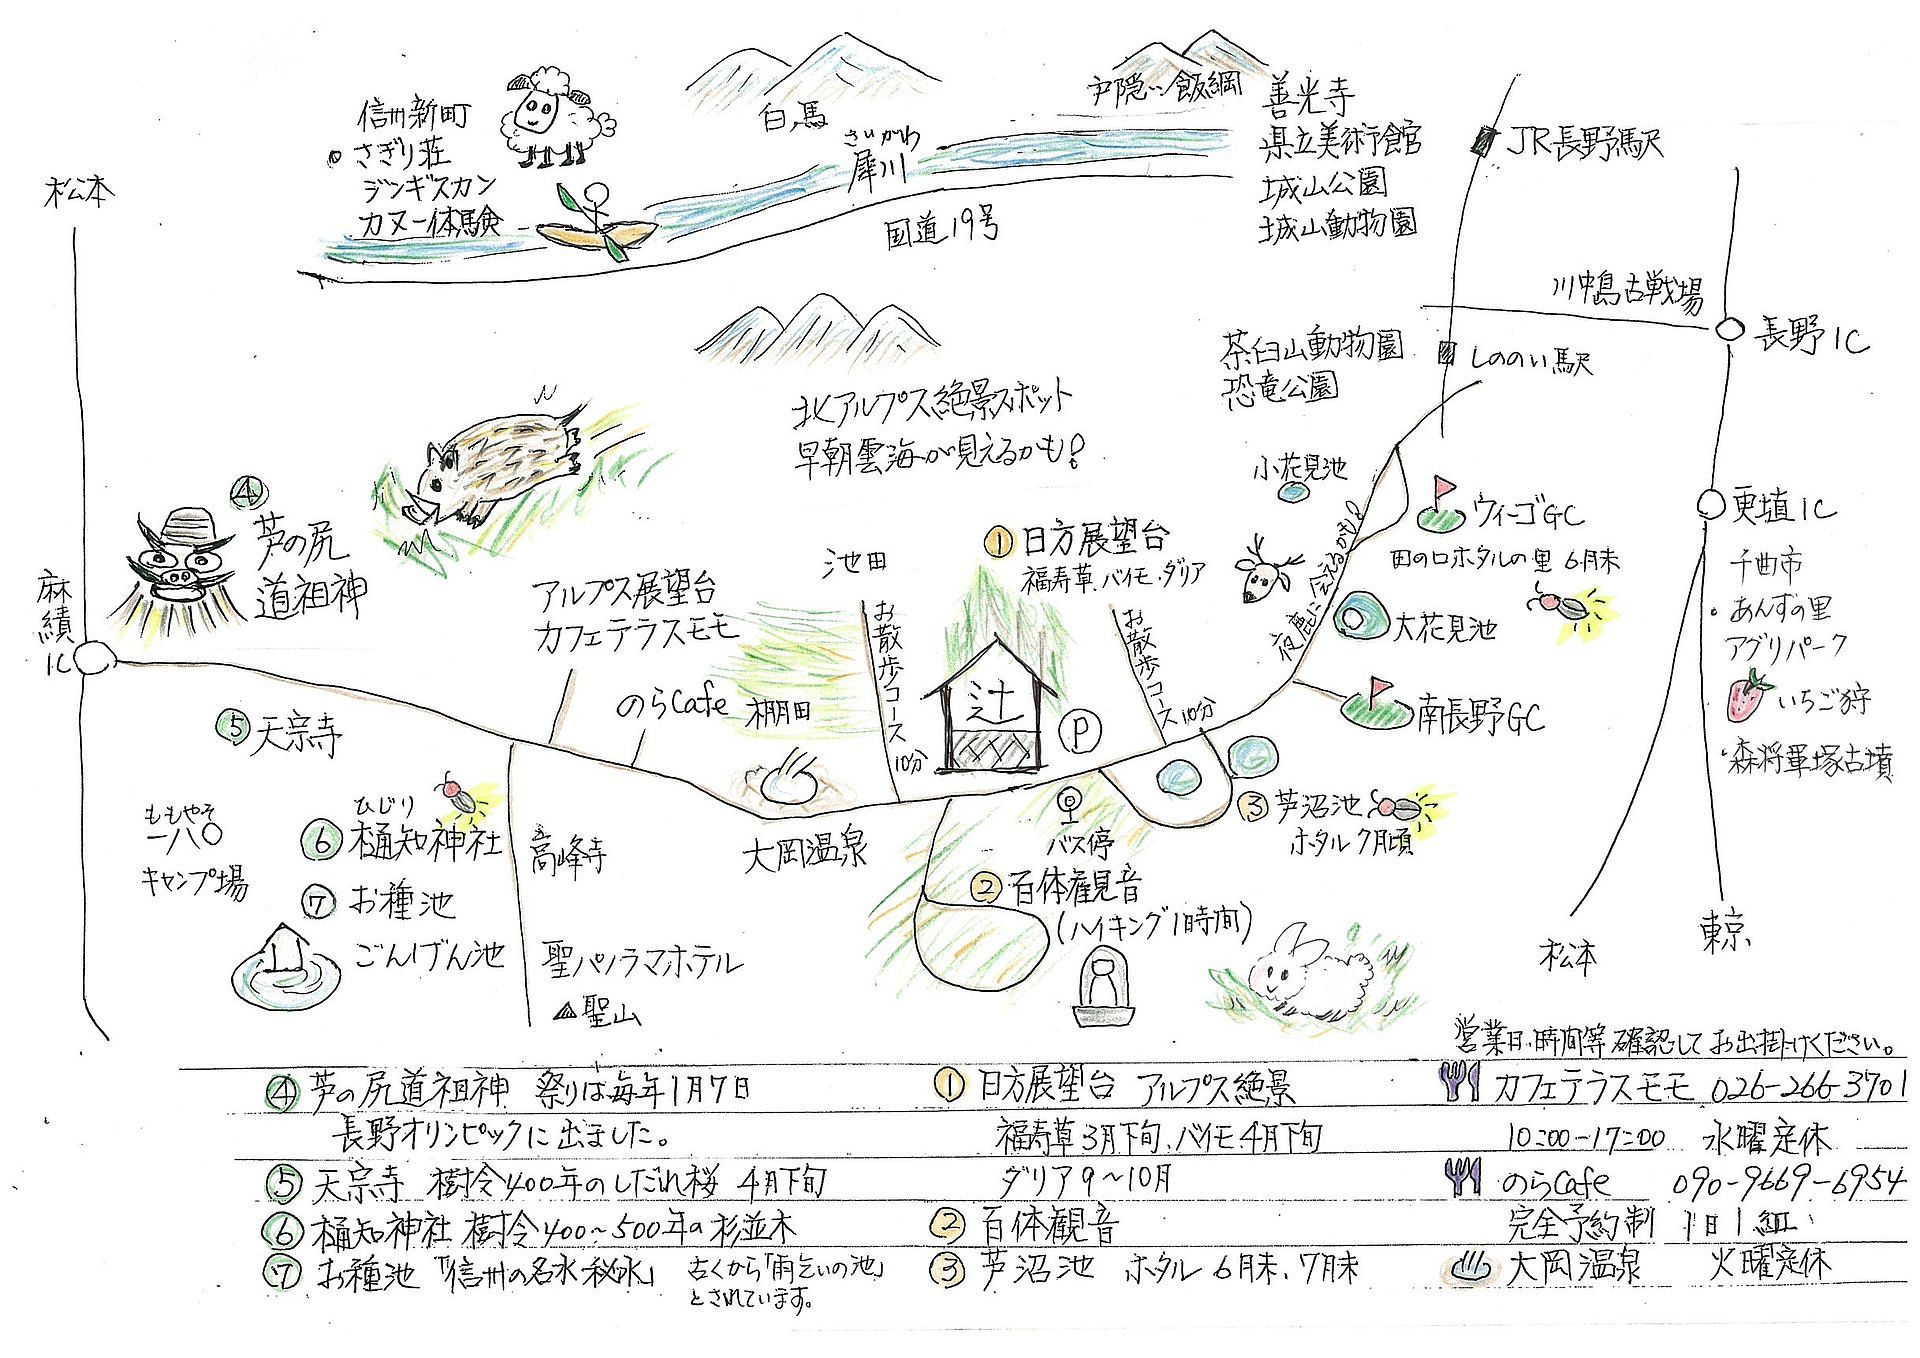 信州新町
さぎり荘
ジンギスカン
カヌー体験
白馬
さいがわ
犀川
国道19号
戸隠 飯綱
善光寺
県立美術館
城山公園
城山動物園
JR長野駅
松本
川中島古戦場
長野IC
茶臼山動物園
恐竜公園
しののい駅
北アルプス絶景スポット
早朝雲海が見えるかも!
小花見池
④
芦の尻
道祖神
ウィーゴGC
田の口ホタルの里 6月末
更埴IC
千曲市
・あんずの里
アグリパーク
いちご狩
・森将軍塚古墳
麻績
IC
アルプス展望台
カフェテラスモモ
池田
お散歩コース 10分
①日方展望台
福寿草.バイモ.ダリア
お散歩コース 10分
夜鹿に会えるかも!
大花見池
南長野GC
⑤天宗寺
のらCafe
棚田
辻
P
③芦沼池
ホタル7月頃
ももやそ
一八〇
キャンプ場
ひじり
⑥樋知神社
⑦お種池
ごんげん池
高峰寺
聖パノラマホテル
聖山
大岡温泉
バス停
②百体観音
(ハイキング1時間)
松本
東京
営業日.時間等確認してお出掛けください。
④芦の尻道祖神 祭りは毎年1月7日
長野オリンピックに出ました。
⑤天宗寺 樹令400年のしだれ桜 4月下旬
⑥樋知神社 樹令400~500年の杉並木
⑦お種池「信州の名水秘水」 古くから「雨乞いの池」
とされています。
①日方展望台 アルプス絶景
福寿草3月下旬.バイモ4月下旬
ダリア9~10月
②百体観音
③芦沼池 ホタル 6月末、7月末
カフェテラスモモ 026-266-3701
10:00-17:00 水曜定休
のらCafe 090-9669-6954
完全予約制 1日1組
大岡温泉 火曜定休